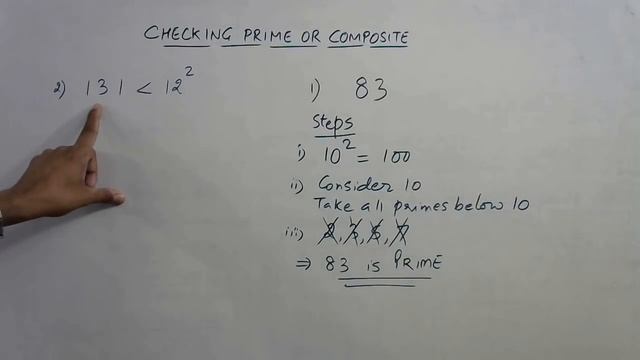 CHECKING PRIME OR COMPOSITE
2) 131 < 12²
1) 83
Steps
i) 10² = 100
ii) Consider 10
Take all primes below 10
iii) 2, 3, 5, 7
⇒ 83 is PRIME